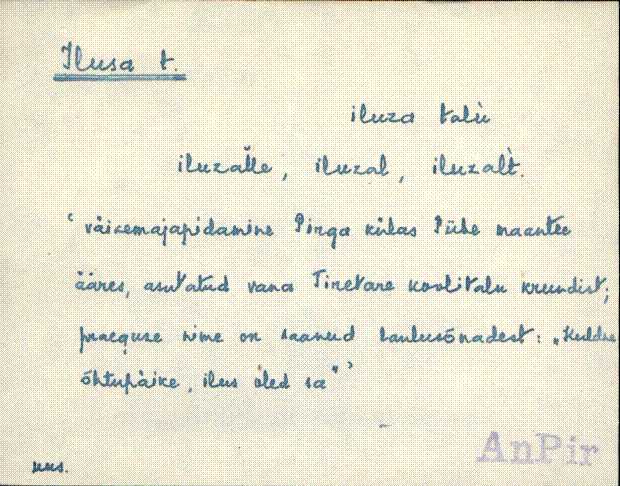 Ilusa t.
iluza talù
iluzalle, iluzal, iluzalt̀.
‘väikemajapidamine Pirga külas Pühe maantee
ääres, asutatud vana Tiretare koolitalu krundist;
praeguse nime on saanud laulusõnadest: „Kuldne
õhtupäike, ilus oled sa”’
AnPir
uus.